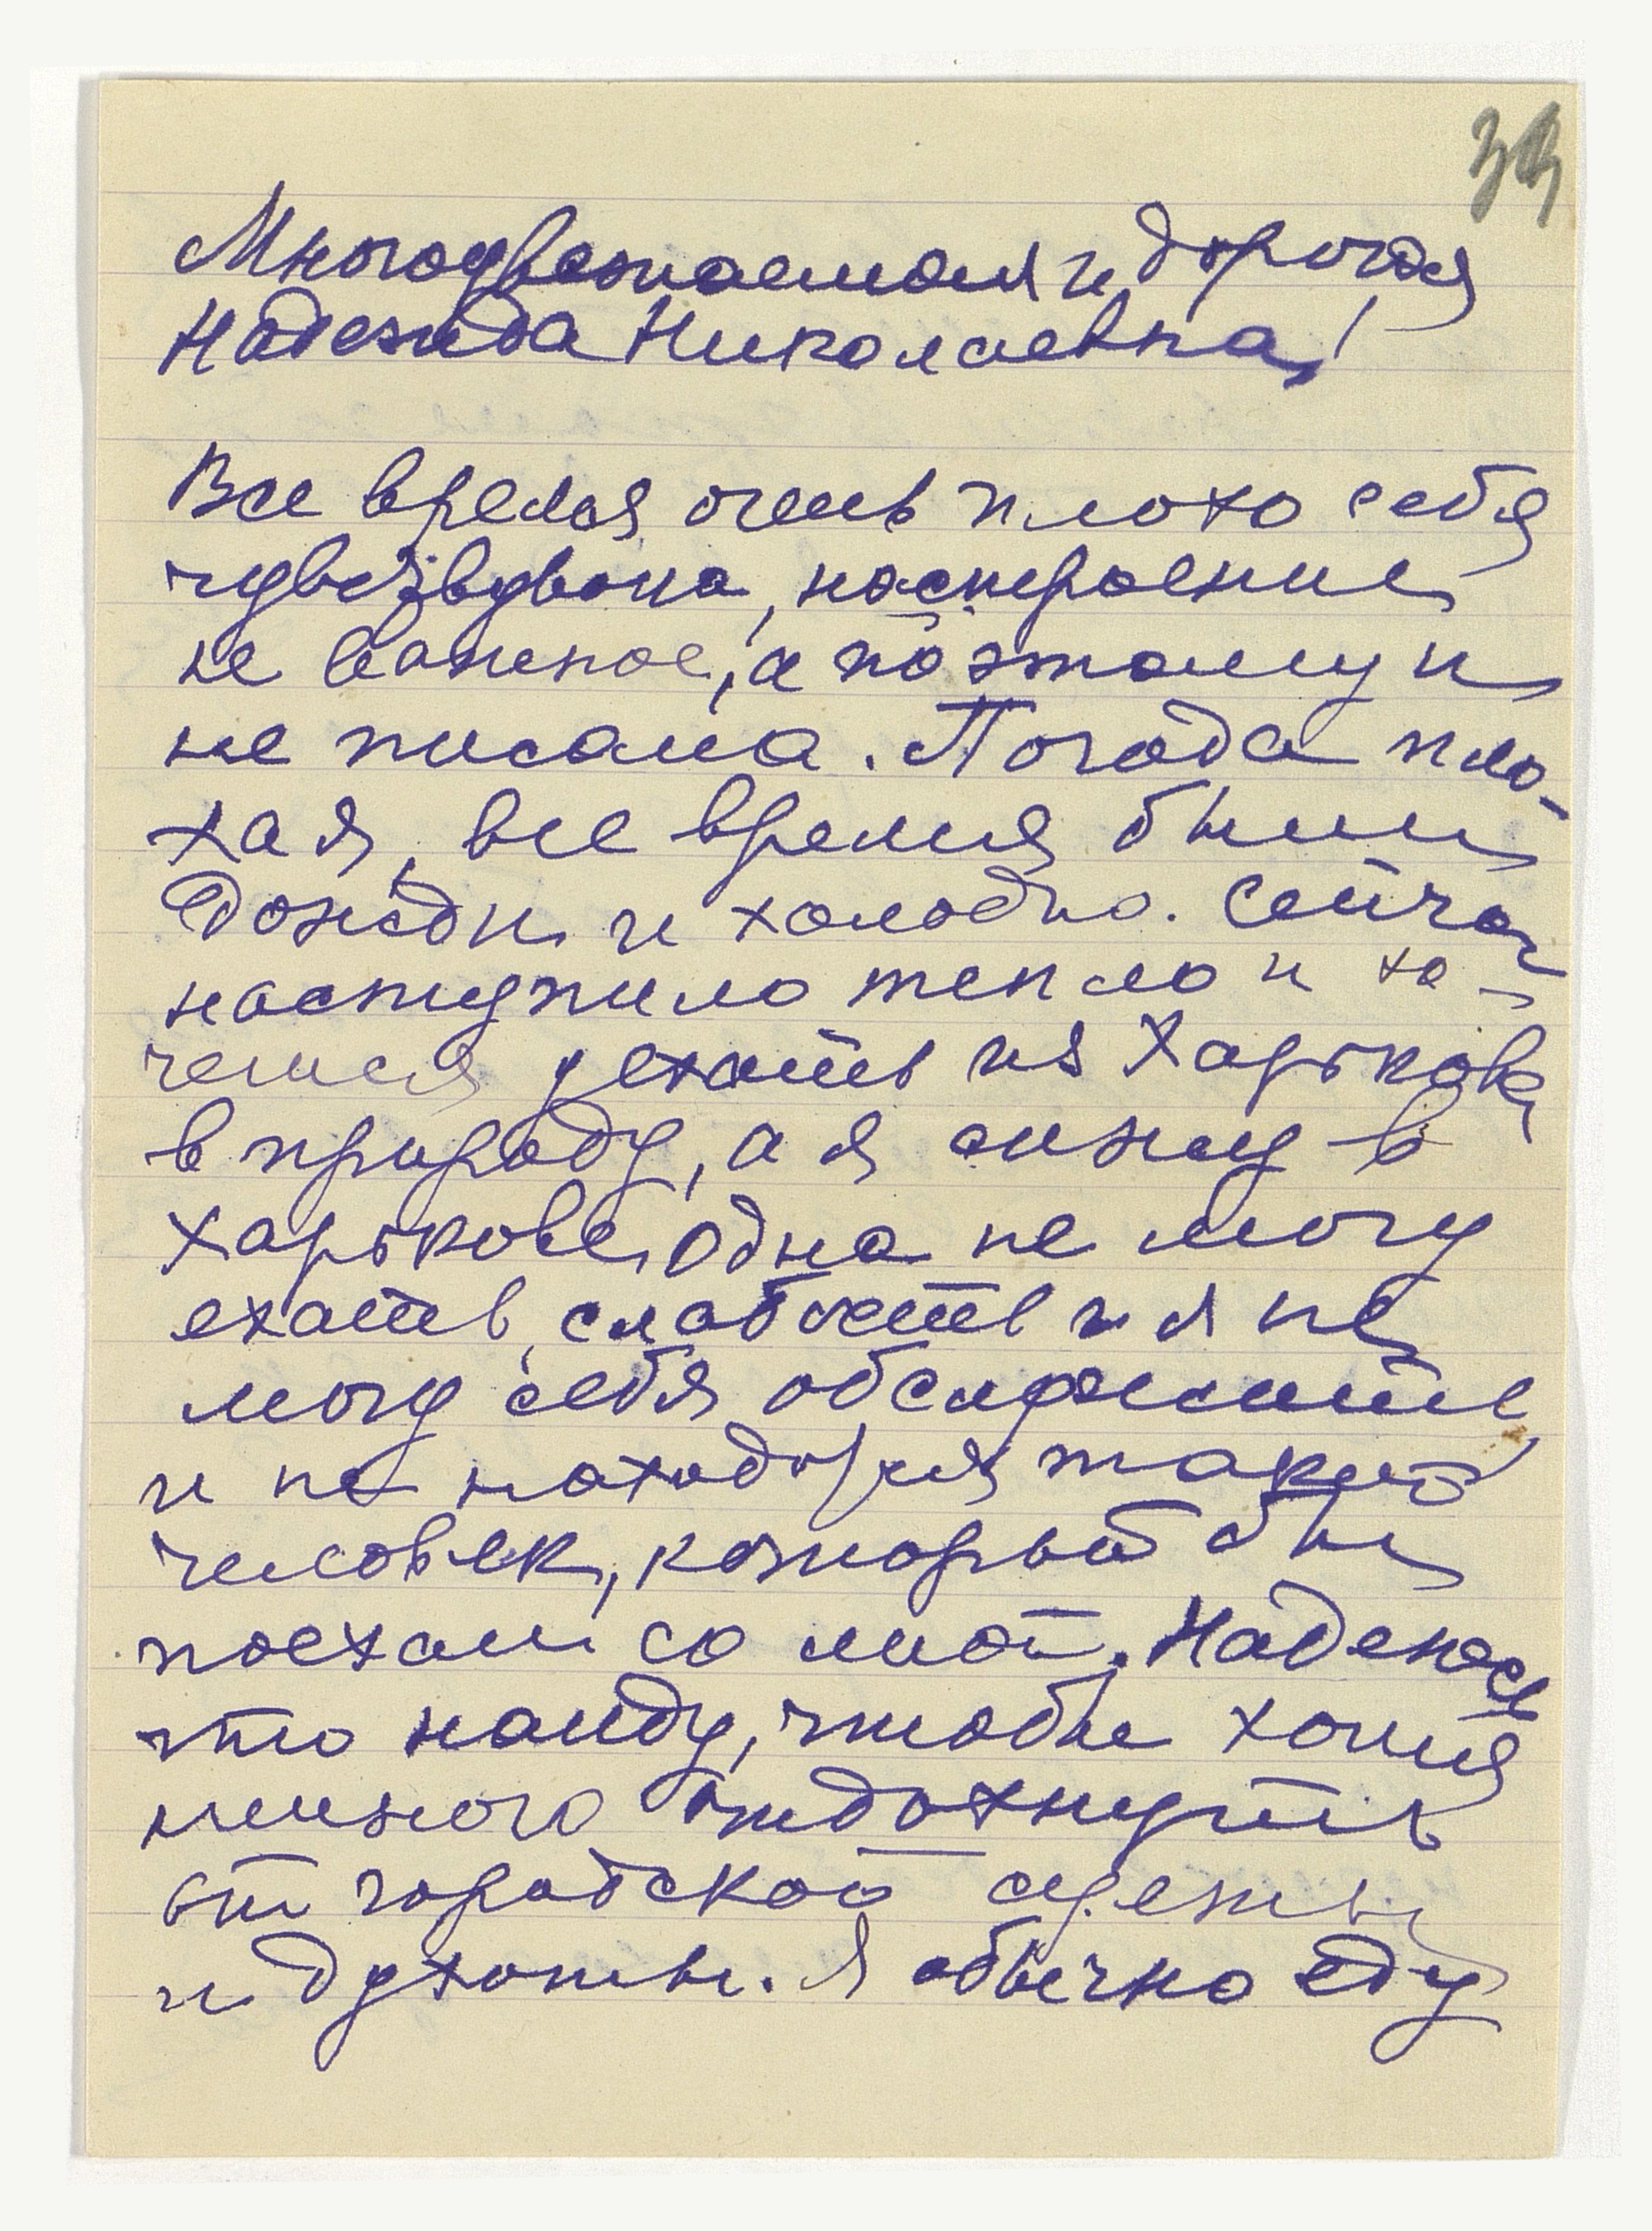 39
Многоуважаемая и дорогая
Надежда Николаевна!
Все время очень плохо себя
чувствувала, настроение
не важное, а поэтому и
не писала. Погода пло-
хая, все время были
дожди и холодно. Сейчас
наступило тепло и хо-
чется уехать из Харькова
в природу, а я сижу в
Харькове, одна не могу
ехать, слабость и я не
могу себя обслужить,
и не находится такой
человек, который бы
поехал со мной. Надеюсь
что найду, чтобы хотя
немного отдохнуть
от городской суеты
и духоты. Я обычно еду